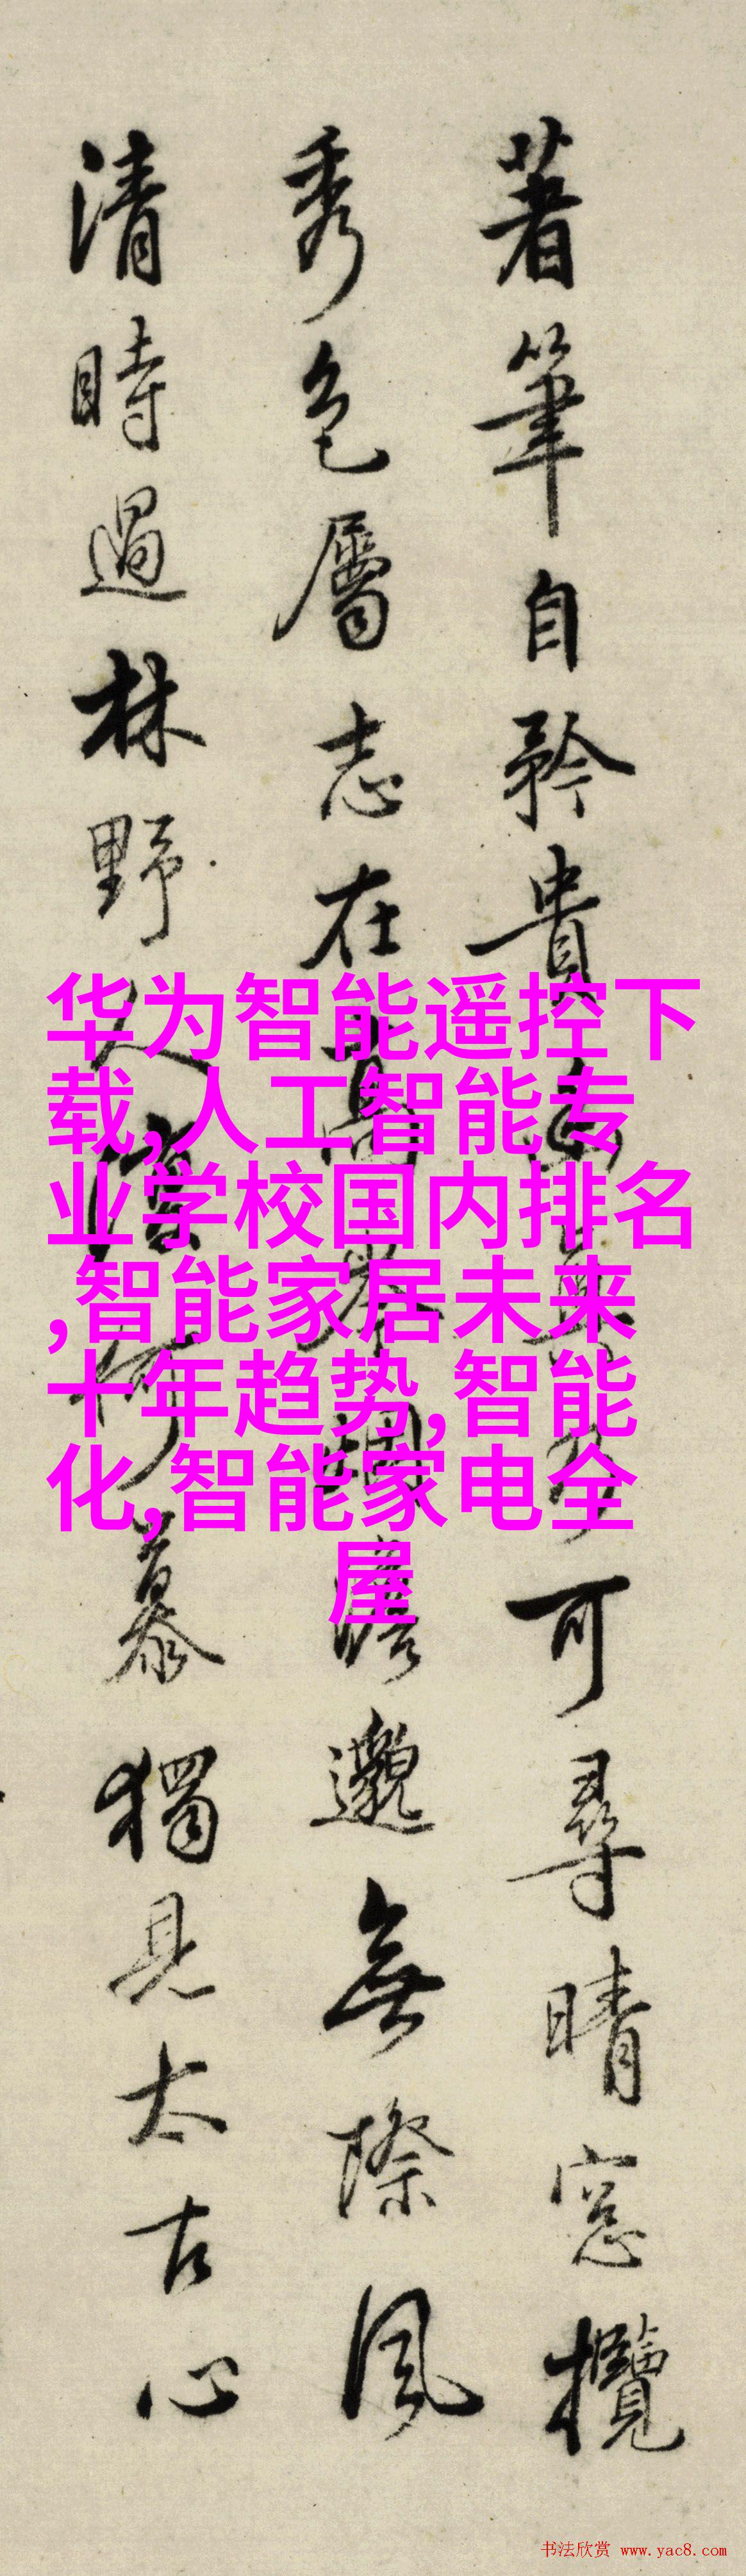 著筆自矜貴可尋晴窓攬
秀色屬志在高邈無際風
清時過林野人澹何慕獨見太古心
华为智能遥控下
载,人工智能专
业学校国内排名
,智能家居未来
十年趋势,智能
化,智能家电全
屋
书法欣赏 www.yac8.com